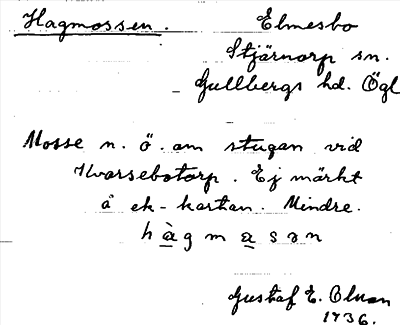 Hagmossen. Elmesbo
Stjärnorp sn.
Gullbergs hd. Ögl
Mosse n. ö. om stugan vid
Kvarsebotorp. Ej märkt
å ek-kartan. Mindre.
hàgmasən
Gustaf E. Olsson
1936.